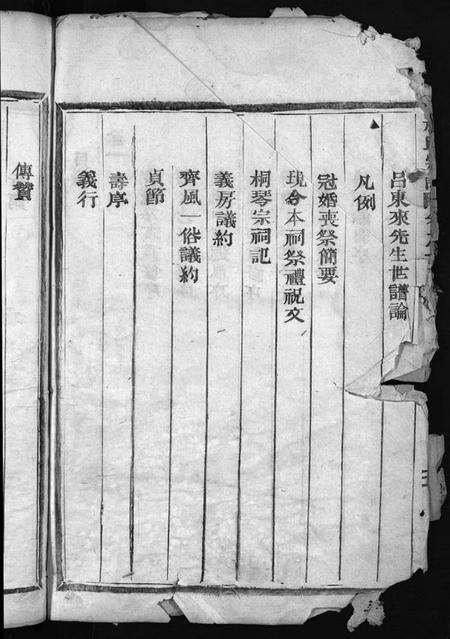 呂東來先生世譜論
凡例
冠婚喪祭簡要
現今本祠祭禮祝文
桐琴宗祠記
義房議約
齊風一俗議約
貞節
壽序
義行
傳贊